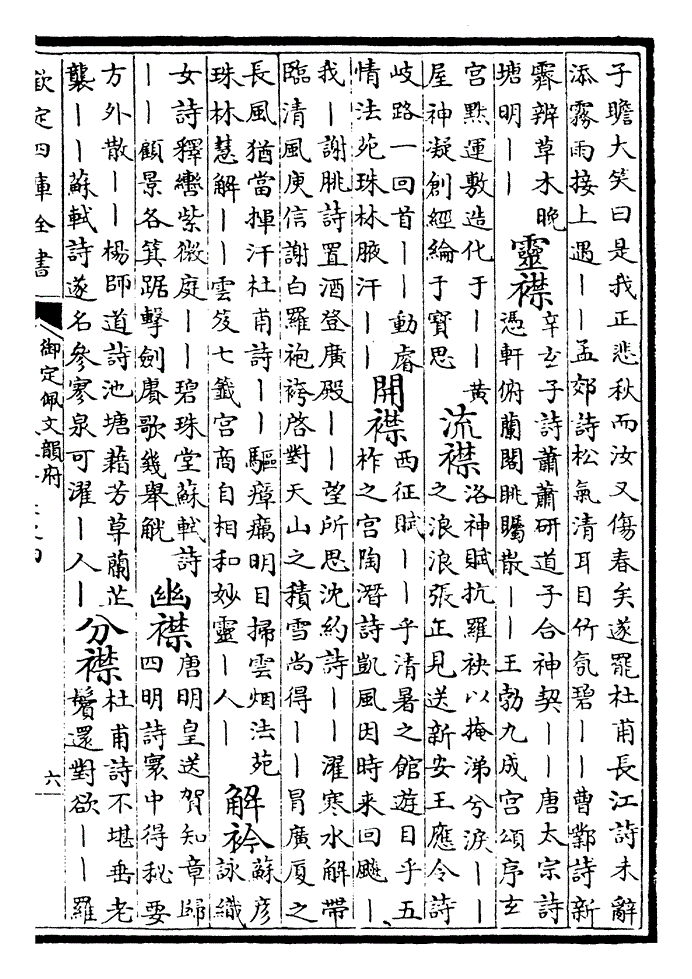 子瞻大笑曰是我正悲秋而汝又傷春矣遂罷杜甫長江詩未辭
添霧雨接上遇丨丨孟郊詩松氣清耳目竹氛碧丨丨曹鄴詩新
霽辨草木晚
塘明丨丨
靈襟
辛玄子詩蕭蕭研道子合神契丨丨唐太宗詩
憑軒俯蘭閣眺矚散丨丨王勃九成宮頌序玄
宮㸃運敷造化于丨丨黄
屋神凝創經綸于寳思
流襟
洛神賦抗羅袂以掩涕兮淚丨丨
之浪浪張正見送新安王應令詩
岐路一回首丨丨動睿
情法苑珠林腋汗丨丨
開襟
西征賦丨丨乎清暑之館遊目乎五
柞之宫陶潛詩凱風因時来回飇丨
我丨謝朓詩置酒登廣殿丨丨望所思沈約詩丨丨濯寒水解帶
臨清風庾信謝白羅袍袴啓對天山之積雪尚得丨丨冒廣厦之
長風猶當揮汗杜甫詩丨丨驅瘴癘明目掃雲烟法苑
珠林慧解丨丨雲笈七籤宫商自相和妙靈丨人丨
解衿
蘇彦
詠織
女詩釋轡紫微庭丨丨碧珠堂蘇軾詩
丨丨顧景各箕踞擊劍賡歌幾舉觥
幽襟
唐明皇送賀知章歸
四明詩寰中得秘要
方外散丨丨楊師道詩池塘藉芳草蘭芷
襲丨丨蘇軾詩遂名參寥泉可濯丨人丨
分襟
杜甫詩不堪垂老
鬢還對欲丨丨羅
欽定四庫全書
御定佩文韻府
六